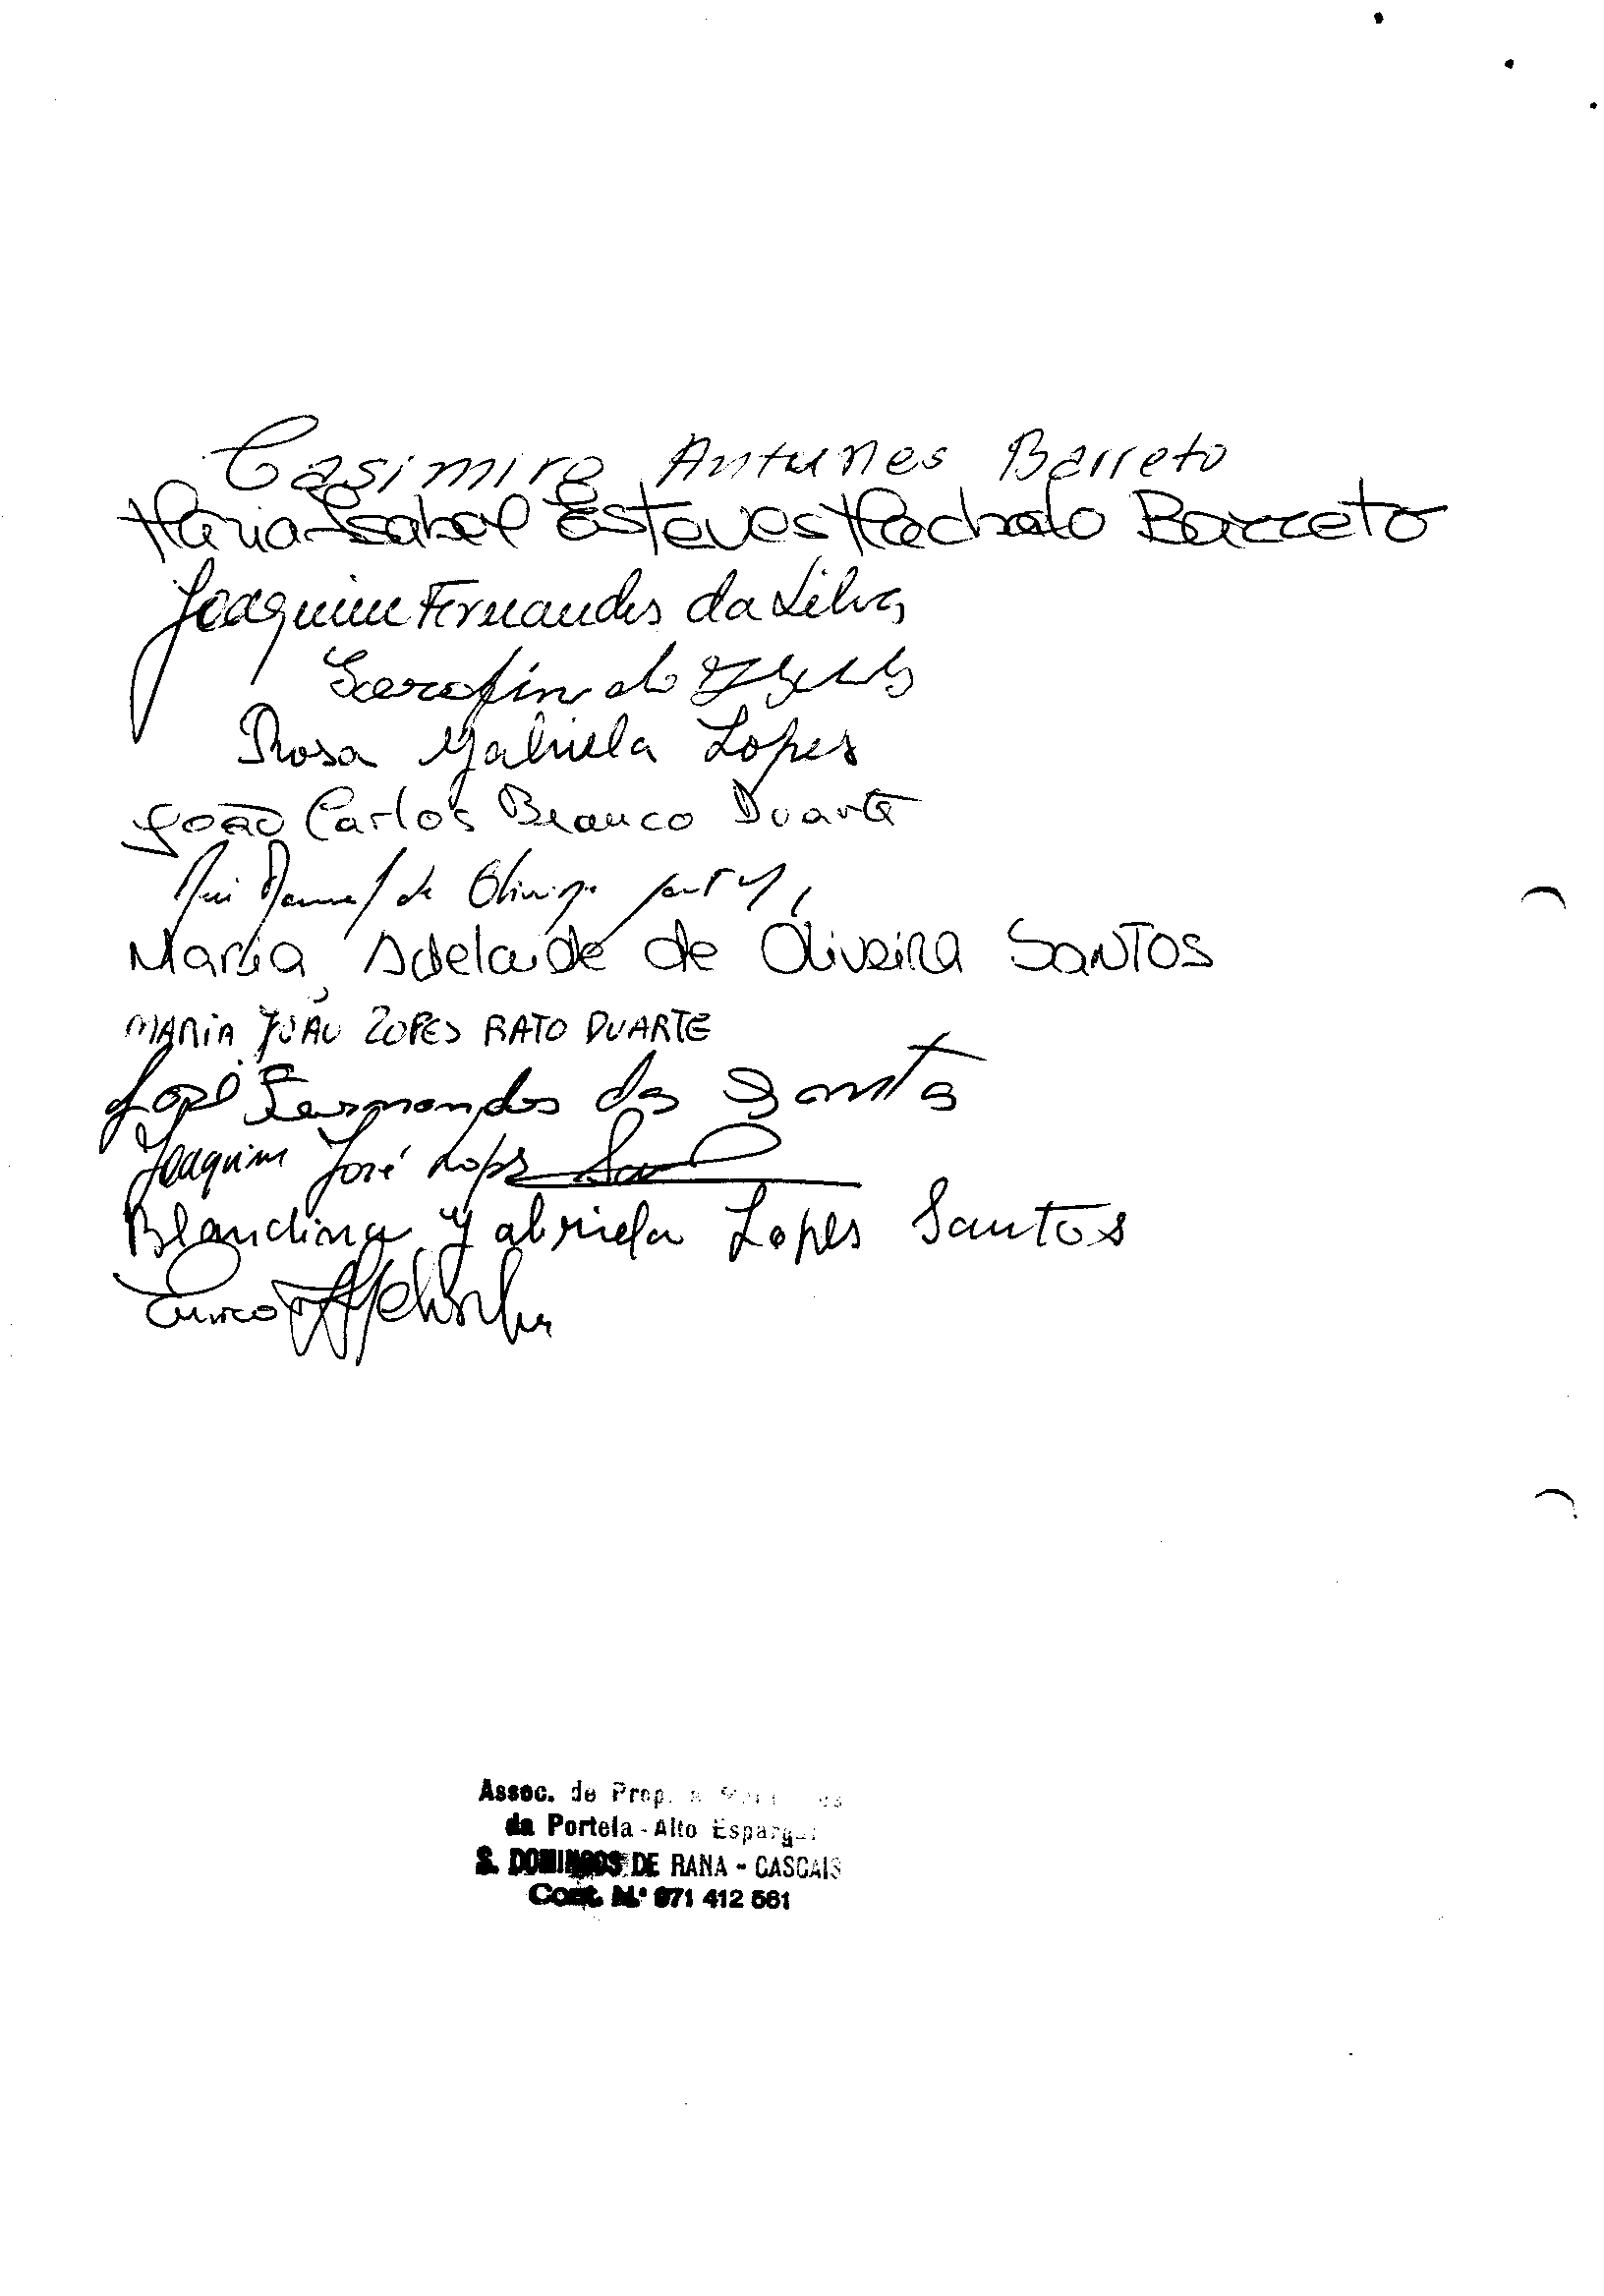 Casimiro Antunes Barreto
Maria Isabel Esteves Machado Barreto
Joaquim Fernandes da Silva
Serafim do
Rosa Gabriela Lopes
João Carlos Branco Duarte
Rui Manuel de Oliveira
Maria Adelaide de Oliveira SANTOS
MARIA JOÃO LOPES RATO DUARTE
José Fernandes dos Santos
Joaquim José Lopes
Blandina Gabriela Lopes Santos
Assoc. de Prop.
da Portela - Alto
S. DOMINGOS DE RANA - CASCAIS
Cont. N.º 971 412 561